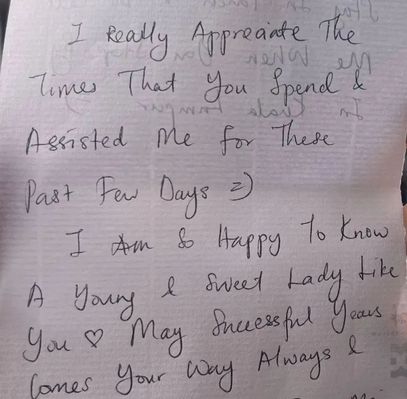 I Really Appreciate The
Times That You Spend &
Assisted Me For These
Past Few Days =)
I Am So Happy To Know
A Young & Sweet Lady Like
You ♡ May Successful Years
Comes Your Way Always &